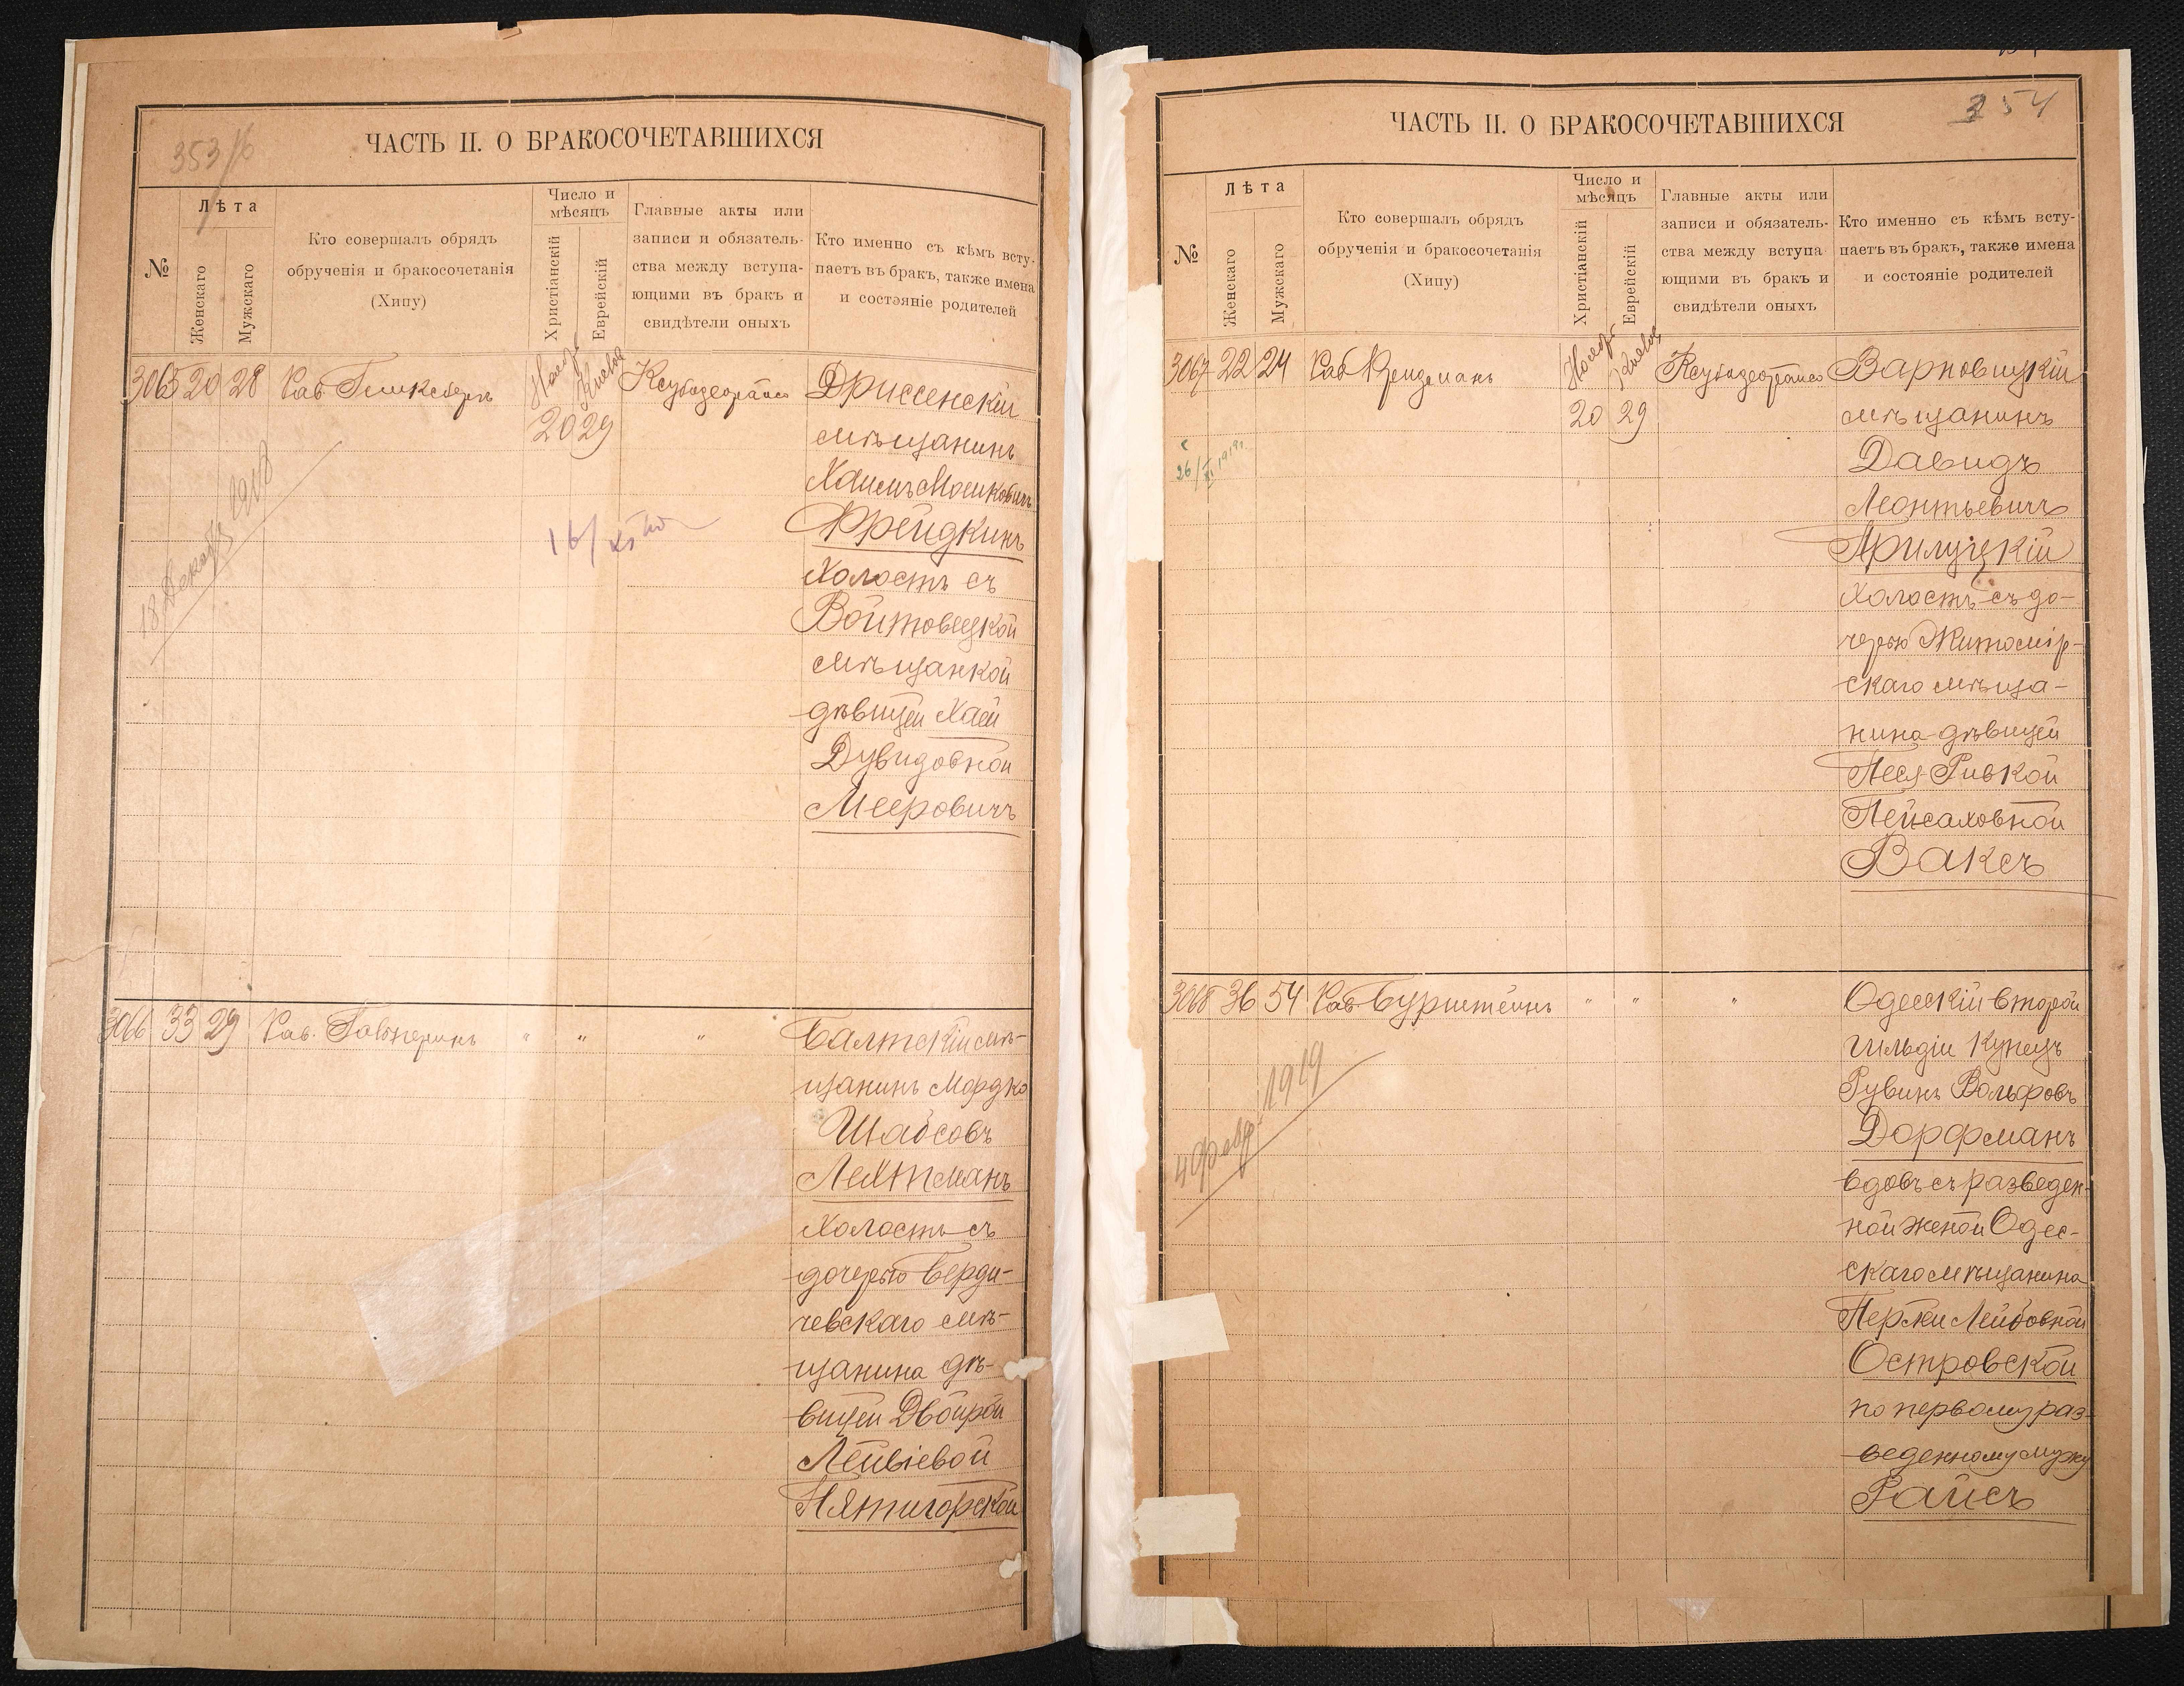 353
ЧАСТЬ II. О БРАКОСОЧЕТАВШИХСЯ
№
Лѣта
Женскаго
Мужскаго
Кто совершалъ обрядъ
обрученія и бракосочетанія
(Хипу)
Число и
мѣсяцъ
Христіанскій
Еврейскій
Главные акты или
записи и обязатель-
ства между вступа-
ющими въ бракъ и
свидѣтели оныхъ
Кто именно съ кѣмъ всту-
паетъ въ бракъ, также имена
и состояніе родителей
3065 20 28 Рав. Гликсбергъ
Нояб. Кислев
20 29
Ксубадеорайсо
Дриссенскій
мѣщанинъ
Хаимъ Мошковичъ
Фрейдкинъ
холостъ съ
Войтовецкой
мѣщанкой
дѣвицей Хаей
Дувидовной
Мееровичъ
18 Декабр 1918
16/XI
3066 33 29 Рав. Гальперинъ " " "
Балтскій мѣ-
щанинъ Мордко
Шабсовъ
Лехтманъ
холостъ съ
дочерью Берди-
чевскаго мѣ-
щанина дѣ-
вицей Двойрой
Лейвіевой
Пятигорской
354
ЧАСТЬ II. О БРАКОСОЧЕТАВШИХСЯ
№
Лѣта
Женскаго
Мужскаго
Кто совершалъ обрядъ
обрученія и бракосочетанія
(Хипу)
Число и
мѣсяцъ
Христіанскій
Еврейскій
Главные акты или
записи и обязатель-
ства между вступа
ющими въ бракъ и
свидѣтели оныхъ
Кто именно съ кѣмъ всту-
паетъ въ бракъ, также имена
и состояніе родителей
3067 22 24 Рав. Фридманъ
Нояб. Кислев
20 29
Ксубадеорайсо
Варновицкій
мѣщанинъ
Давидъ
Леонтьевичъ
Прилуцкій
холостъ съ до-
черью Житомір-
скаго мѣща-
нина дѣвицей
Песя-Ривкой
Пейсаховной
Ваксъ
26/XI 1919
3068 36 54 Рав. Бурштейнъ " " "
Одесскій второй
гильдіи купецъ
Рувинъ Вольфовъ
Дорфманъ
вдовъ съ разведен-
ной женой Одес-
скаго мѣщанина
Перки Лейбовной
Островской
по первому раз-
веденному мужу
Райсъ
4 февр. 1919